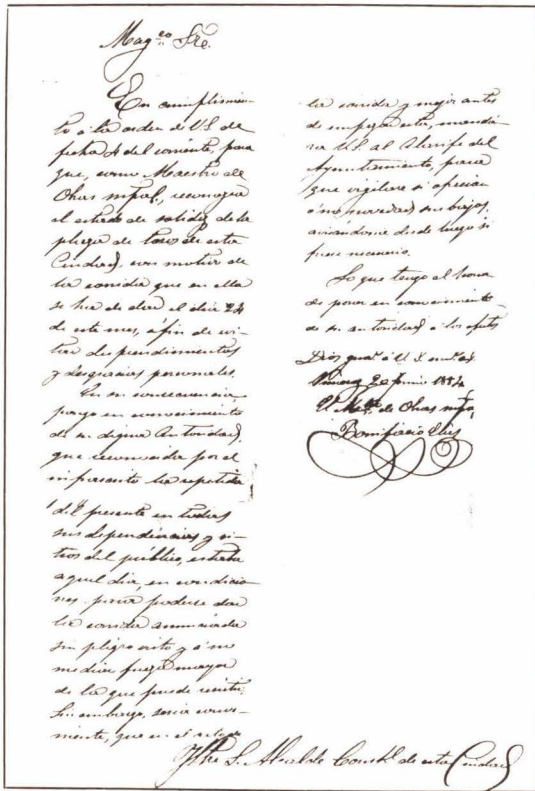 Mag.co Sre.
En cumplimien-
to á la orden de V.S. de
fecha 4 del corriente, para
que, como Maestro de
Obras mpal, reconozca
el estado de solidez de la
plaza de toros de esta
Ciudad, con motivo de
la corrida que en ella
se ha de dar el dia 24
de este mes, á fin de evi-
tar desprendimientos
y desgracias personales.
En su consecuencia
pongo en conocimiento
de su digna Autoridad,
que reconocida por el
infrascrito la repetida
presente en todas
sus dependencias y si-
tios del público, estaba
aquel dia, en condicio-
nes para poderse dar
la corrida anunciada
sin peligro y á no
mediar fuerza mayor
de la que puede resistir;
Sin embargo, seria conve-
niente, que en el
la corrida y mejor antes
de empezar esta, mandá-
ra V.S. al Alarife del
Ayuntamiento, para
que vigilare si ofrecian
ó no novedad sus bajos,
avisándome desde luego si
fuese necesario.
Lo que tengo el honor
de poner en conocimiento
de su autoridad á los efectos
Dios gue á V.S. m.s a.s
20 Junio 1884
El Mtro de Obras mpal,
Bonifacio
Iltre S. Alcalde Constl de esta Ciudad